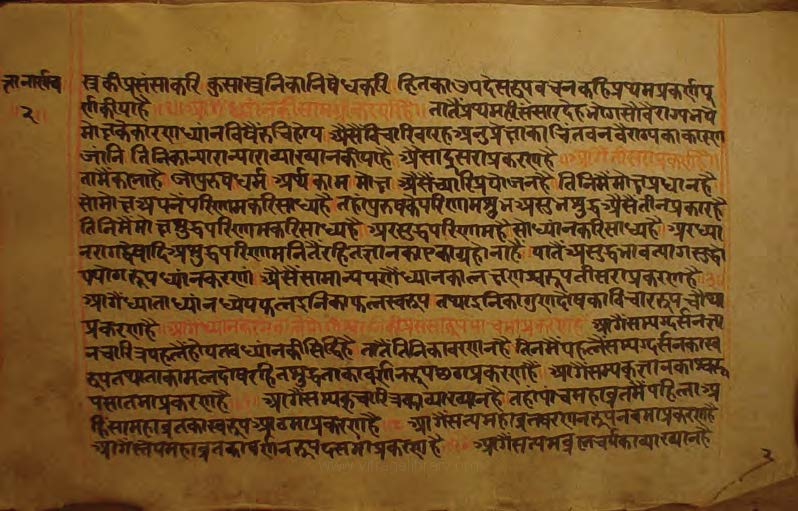 ज्ञानार्णव
२
स्त्रकी प्रसंसा करि कुसास्त्रनिका निषेध करि हितका उपदेसरूप वचन कहि प्रथम प्रकर्ण पू
र्ण कीया है आगैं ध्यानकी सामग्री का प्रकर्ण है तातैं प्रथम ही संसार देह भोगसौं वैराग्य भये
मोक्षकै कारण ध्यान विषैं रुचि होय अैसैं विचारि बारह अनुप्रेक्षाका चिंतवन वैराग्यका कारण
जांनि तिनिका न्यारा न्यारा व्याख्यान कीया है अैसा दूसरा प्रकरण है आगैं तीसरा प्रकर्ण है
तामैं कह्या है जो पुरुष धर्म अर्थ काम मोक्ष अैसैं च्यारि प्रयोजन है तिनिमैं मोक्ष प्रधान है
सो मोक्ष अपने परिणाम करि साध्य है तहां पुरुषकै परिणाम शुभ असुभ शुद्ध अैसे तीन प्रकार है
तिनिमैं मोक्ष शुद्ध परिणाम करि साध्य है अर सुद्ध परिणाम है सो ध्यान करि साध्य है अर ध्या
न रागद्वेषादि अशुद्ध परिणामनितैं रहित ज्ञानका एकाग्र होना है यातैं असुद्ध भाव त्याग सुद्धो
पयोगरूप ध्यांन करणा अैसैं सामान्यपणैं ध्यानका लक्षण स्वरूप तीसरा प्रकरण है
आगैं ध्याता ध्यांन ध्येय फल इनिका फल स्वरूप तथा इनिका गुण दोषका विचाररूप चौथा
प्रकरण है आगैं ध्यान करने प्रसंसारूप पांचमा प्रकरण है आगैं सम्यग्दर्सन ज्ञा
न चारित्र पहलैं होय तब ध्यांनकी सिद्धि है तातैं तिनिका वरणन है तिनिमैं पहलैं सम्यग्दर्सनका स्व
रूप तथा ताका मल दोष रहित शुद्धताका वर्णनरूप छठा प्रकरण है आगैं सम्यक् ज्ञानका स्वरू
प सातमा प्रकरण है आगैं सम्यक् चारित्रका व्याख्यान है तहां पांच महाव्रतमैं पहिला अ
हिंसा महाव्रतका स्वरूप आठमा प्रकरण है आगैं सत्य महाव्रत वरणनरूप नवमा प्रकरण है
आगैं स्तेय महाव्रतका वर्णनरूप दसमा प्रकरण है आगैं सत्यमब्रह्मचर्यका व्याख्यान है
२